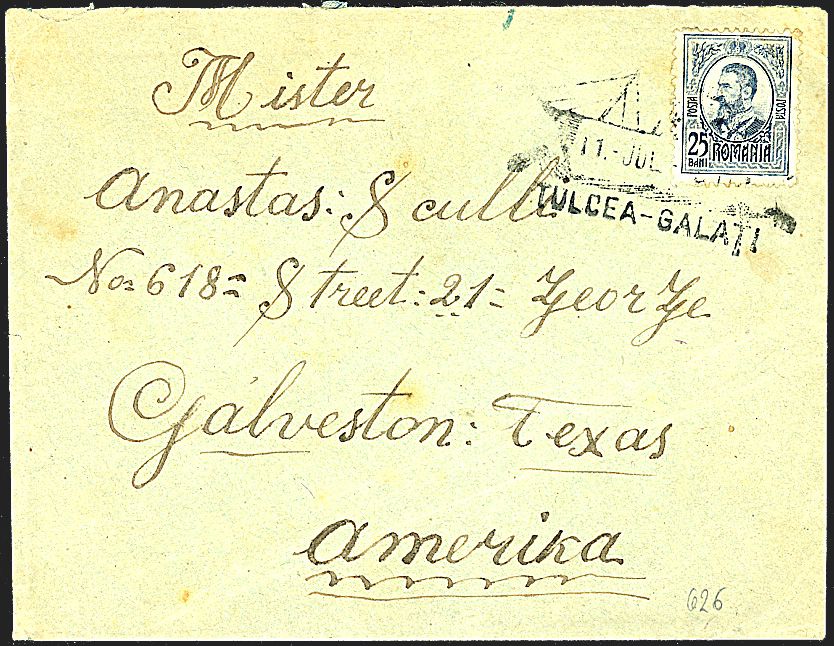 Mister
Anastas: Sculli
No= 618= Street: 21= George
Galveston: Texas
Amerika
POSTA
25 BANI
ROMANIA
11.-JUL
TULCEA-GALAȚI
626